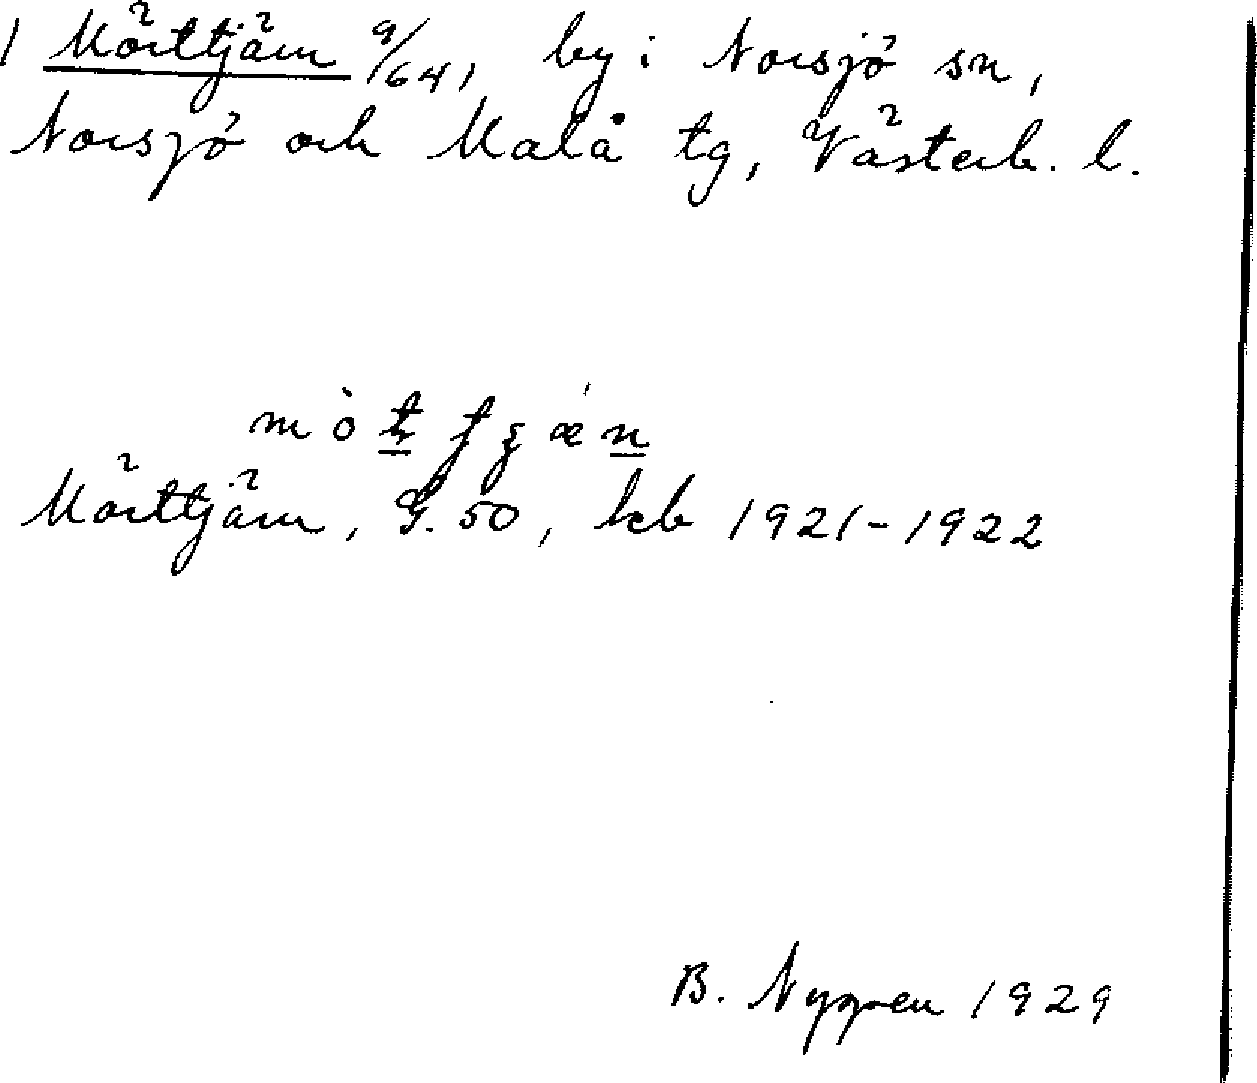 1 Mörttjärn 9/64, by i Norsjö sn,
Norsjö och Malå tg, Västerb. l.
Mörttjärn, G. 50, kb 1921-1922
B. Nygren 1929